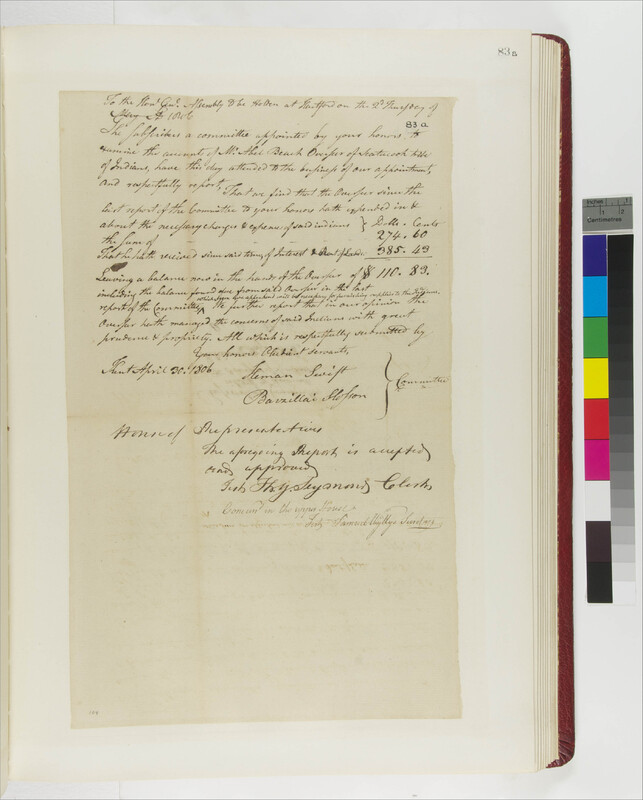 83a
To the Honl. Genl. Assembly to be Holden at Hartford on the 2d. Thursday of
May AD 1806
83a
The Subscribers a committee appointed by your honors to
examine the account of Mr. Abel Beach Overseer of Scatacook tribe
of Indians, have this day attended to the business of our appointment,
and respectfully report, That we find that the Overseer since the
last report of the Committee to your honors hath expended in &
about the necessary charges & expenses of said indians } Dolls. Cents
the sum of 274. 60
That he hath received since said term, of Interest & Rent of Lands 385. 43
Leaving a balance now in the hands of the Overseer of $ 110. 83.
including the balance found due from said Overseer in the last
which sum we apprehend will be necessary for furnishing supplies to the Indians,
report of the Committee. We further report that in our opinion the
Overseer hath managed the concerns of said Indians with great
prudence & propriety. All which is respectfully submitted by
Your honors Obedient servants,
Kent April 30th. 1806
Heman Swift
Barzillai Slosson
} Committee
House of Representatives
The aforegoing Report is accepted
and approved
Test Thy. Seymour Clerk
Concurred in the upper House
Test Samuel Wyllys Secretary
Inches 1 2
Centimetres